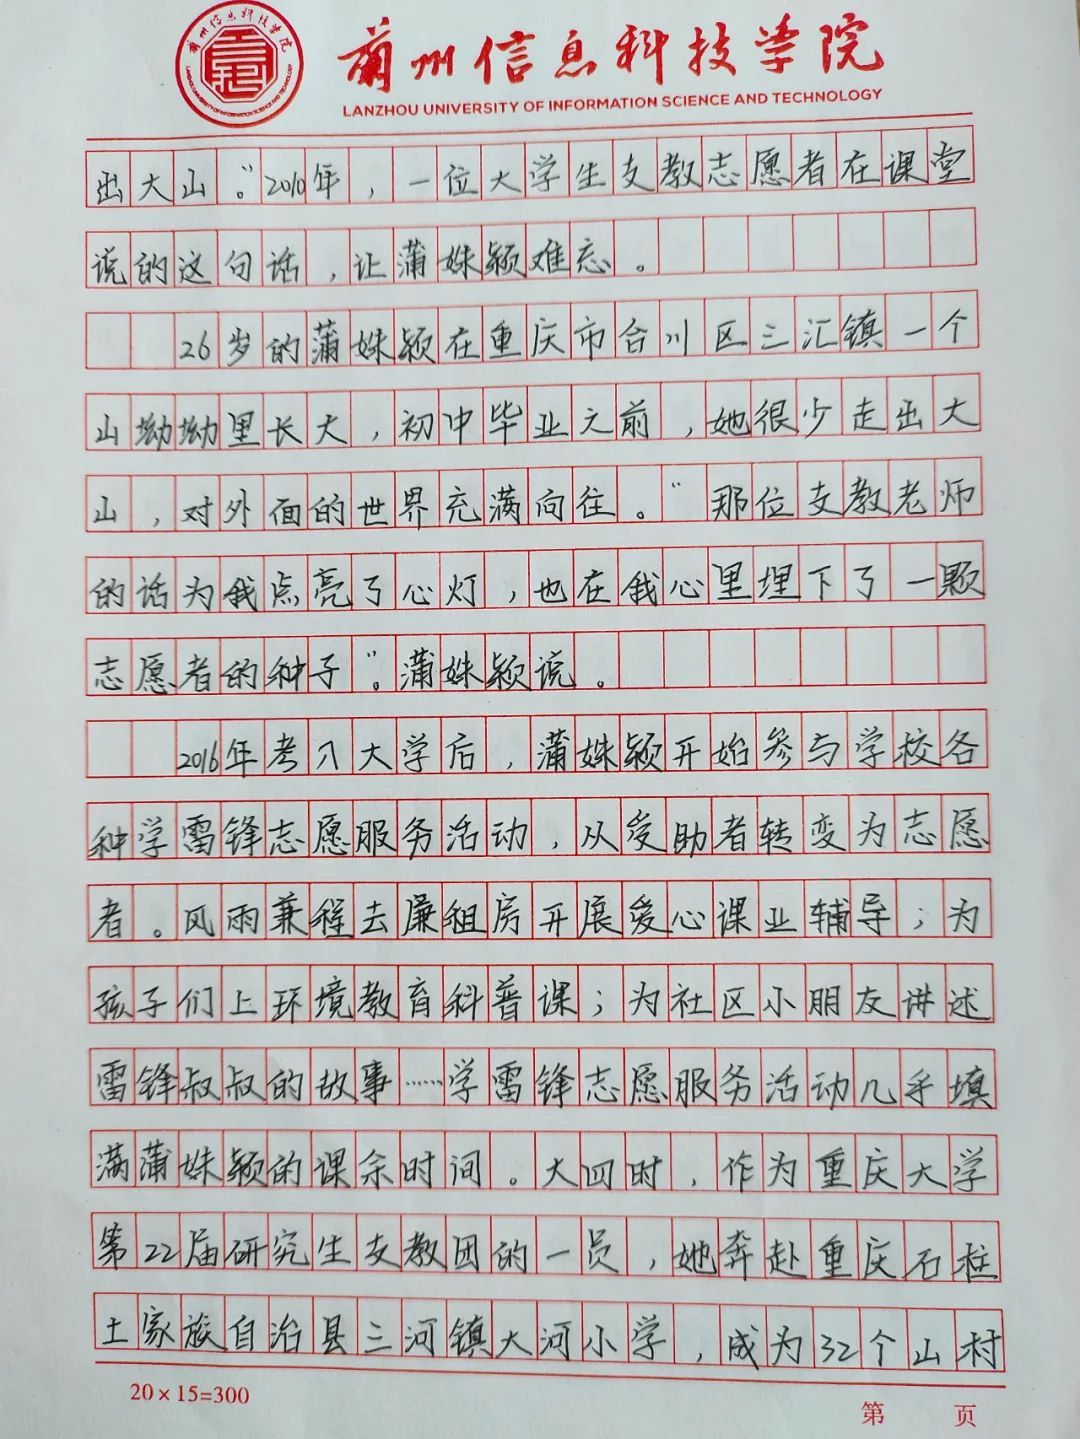 兰州信息科技学院
LANZHOU UNIVERSITY OF INFORMATION SCIENCE AND TECHNOLOGY
出大山。”2010年，一位大学生支教志愿者在课堂
说的这句话，让蒲姝颖难忘。
26岁的蒲姝颖在重庆市合川区三汇镇一个
山坳坳里长大，初中毕业之前，她很少走出大
山，对外面的世界充满向往。“那位支教老师
的话为我点亮了心灯，也在我心里埋下了一颗
志愿者的种子”。蒲姝颖说。
2016年考入大学后，蒲姝颖开始参与学校各
种学雷锋志愿服务活动，从受助者转变为志愿
者。风雨兼程去廉租房开展爱心课业辅导；为
孩子们上环境教育科普课；为社区小朋友讲述
雷锋叔叔的故事……学雷锋志愿服务活动几乎填
满蒲姝颖的课余时间。大四时，作为重庆大学
第22届研究生支教团的一员，她奔赴重庆石柱
土家族自治县三河镇大河小学，成为32个山村
20×15=300
第 页